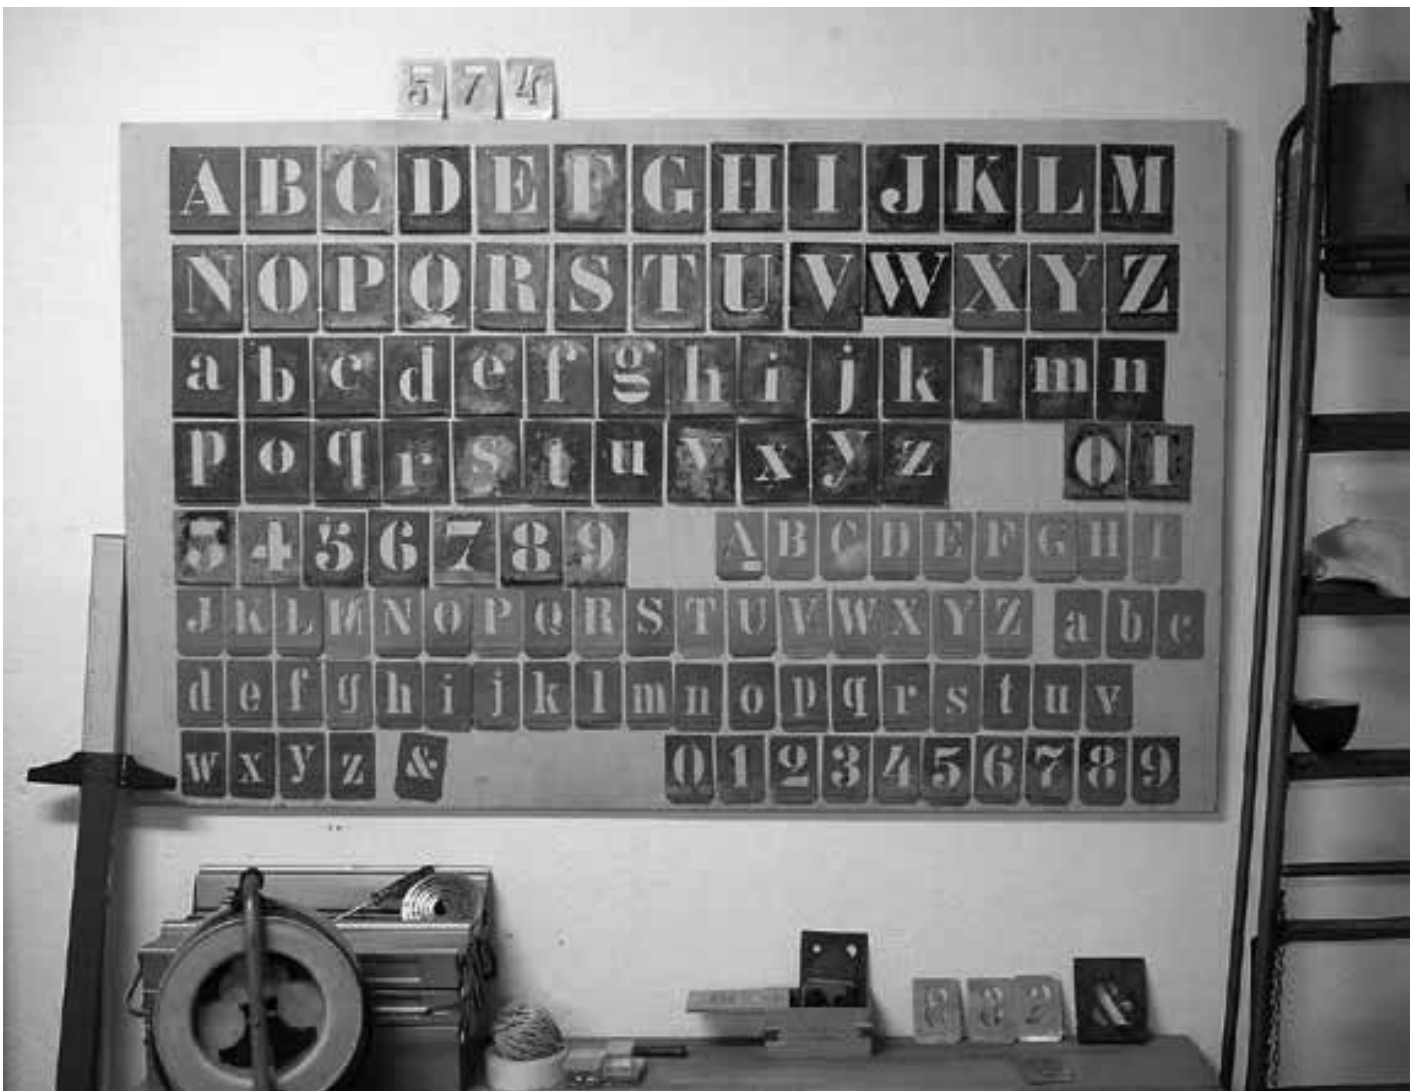 574
ABCDEFGHIJKLM
NOPQRSTUVWXYZ
abcdefghijklmn
poqrstuvxyz 01
3456789 ABCDEFGHI
JKLMNOPQRSTUVWXYZ abc
defghijklmnopqrstuv
wxyz & 0123456789
&